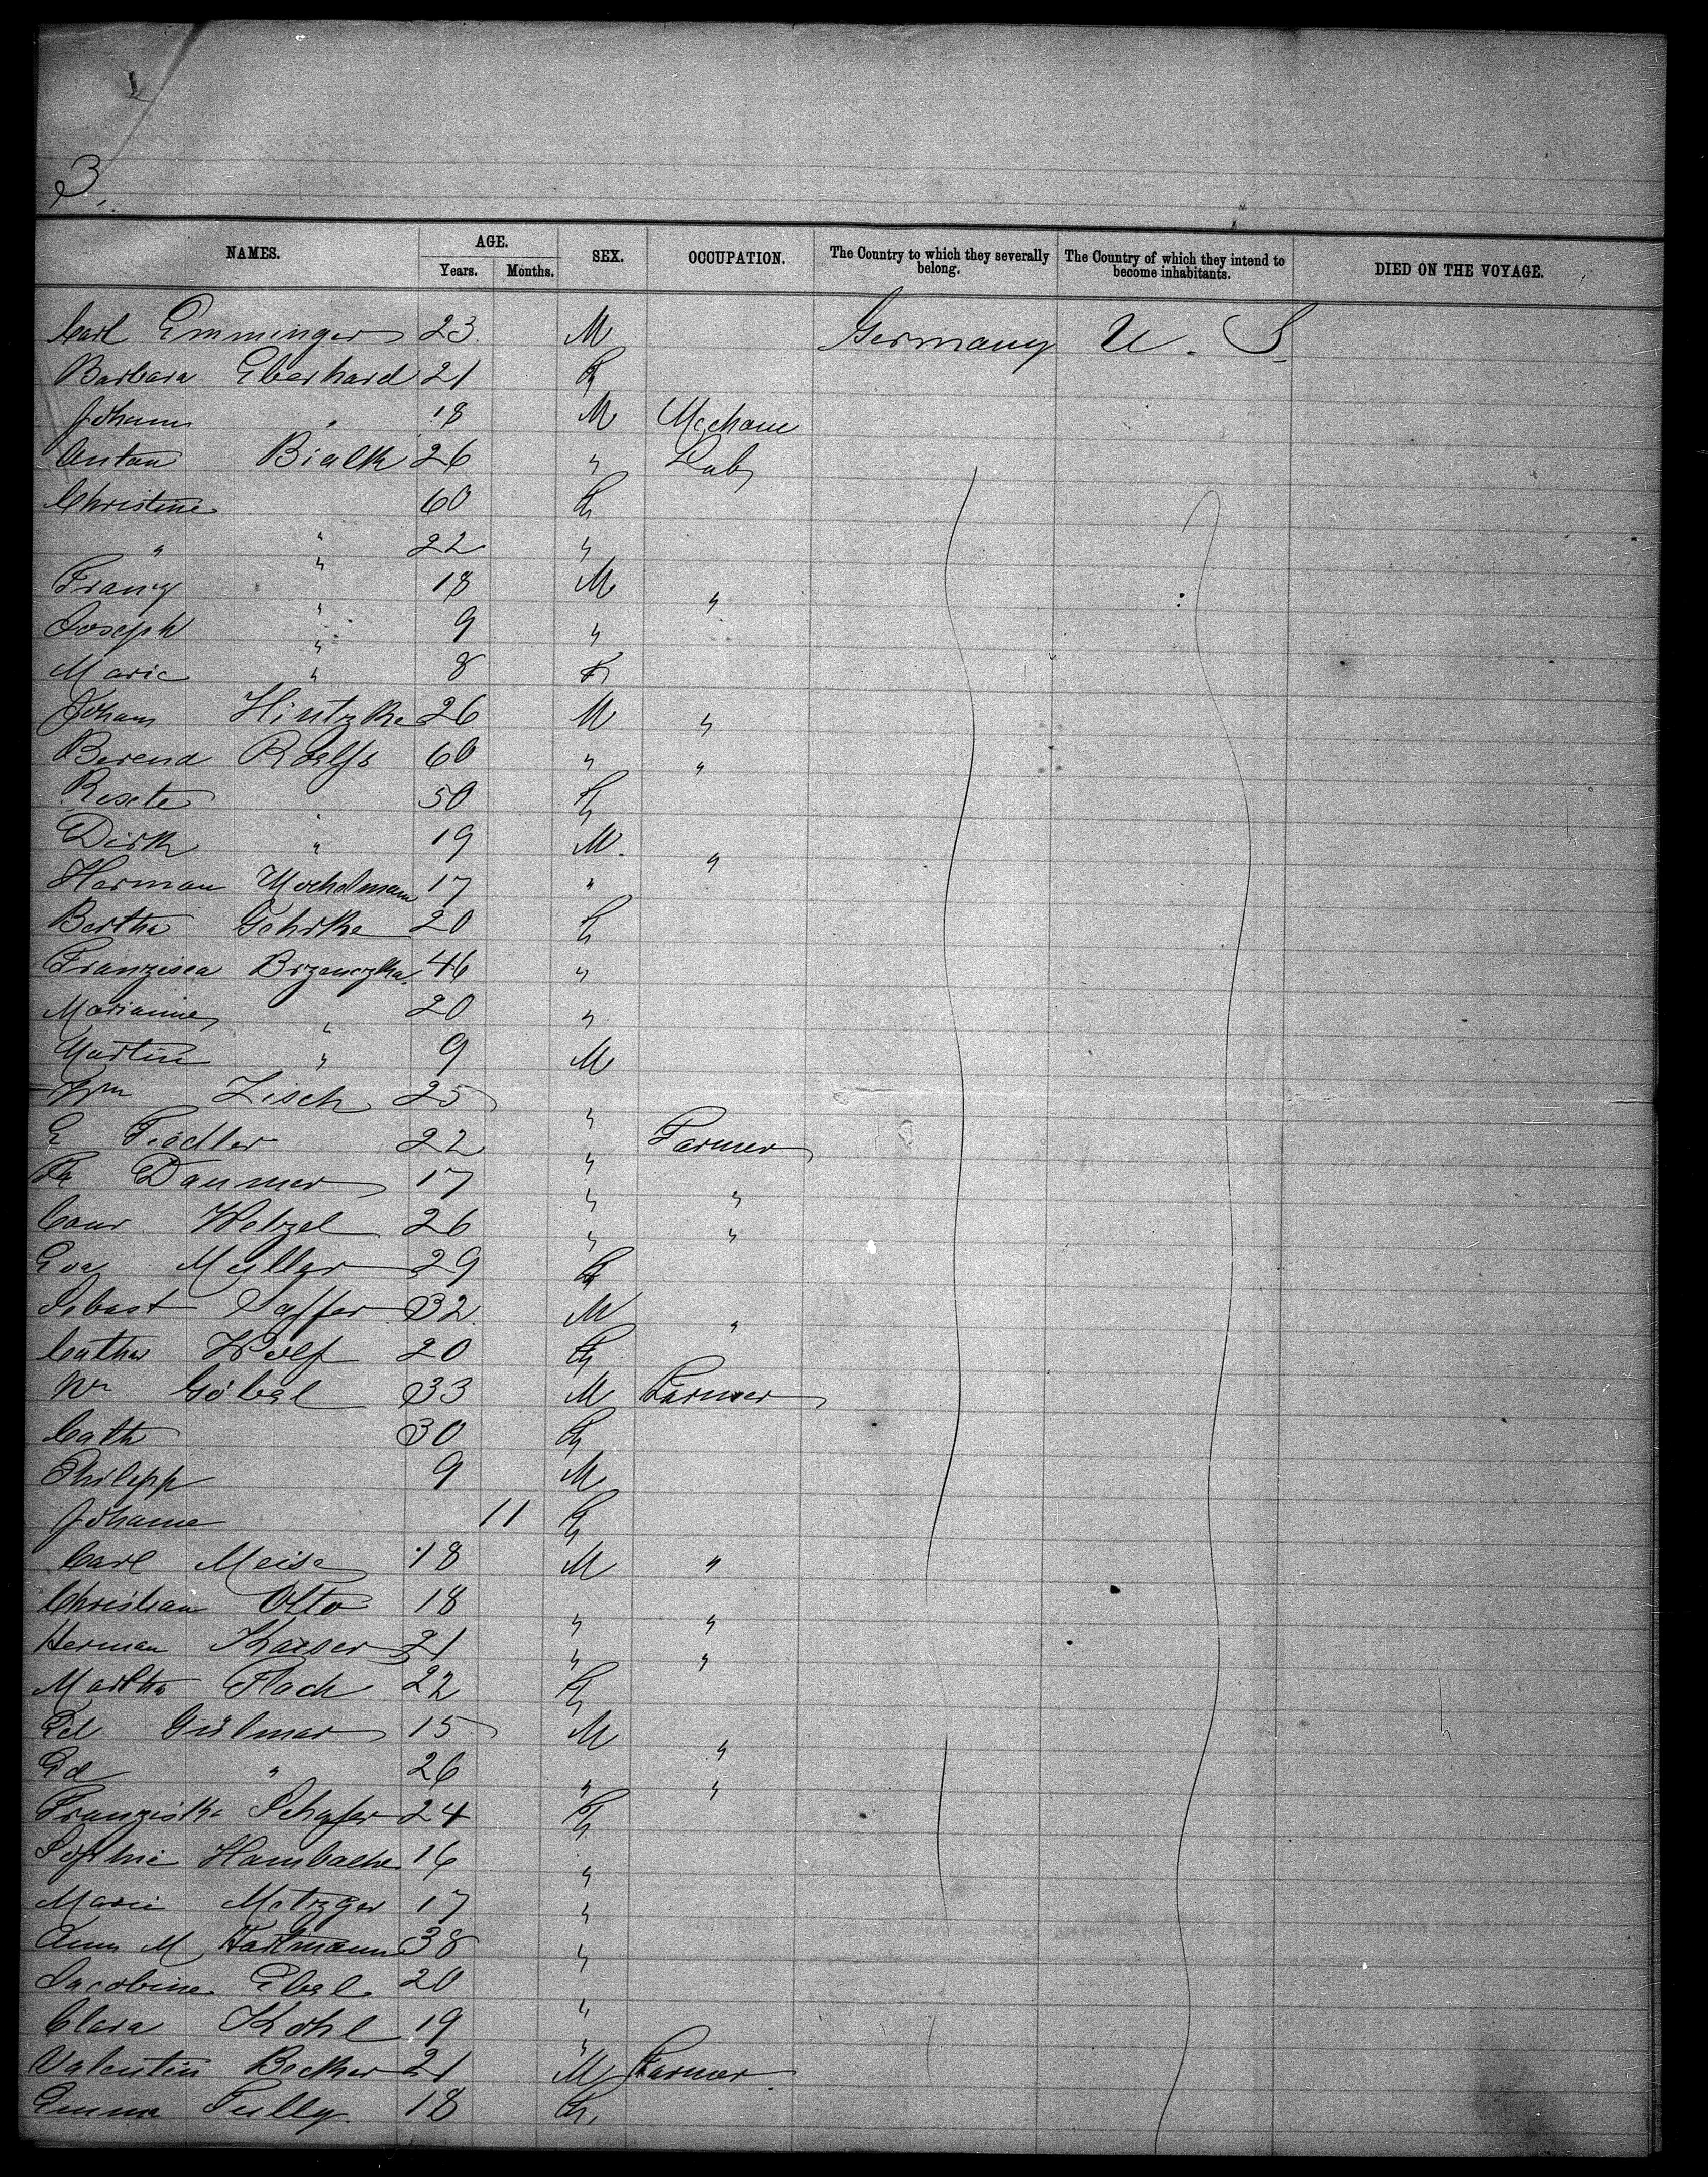 3.
NAMES. AGE. Years. Months. SEX. OCCUPATION. The Country to which they severally belong. The Country of which they intend to become inhabitants. DIED ON THE VOYAGE.
Carl Emminger 23. M Germany U. S
Barbara Eberhard 21 F
Johann " 18 M Mechanic
Anton Bialk 26 " Lab
Christine 60 F
" " 22 "
Franz " 18 M "
Joseph " 9 "
Marie " 8 F
Johann Hintzke 26 M "
Berend Roelfs 60 " "
50 F
Dirk " 19 M. "
Herman 17 "
Bertha Gehrke 20 F
Franzisca Brzenczka 46 "
Marianne " 20 "
Martin " 9 M
Wm Zisch 25 "
E Fiedler 22 " Farmer
Fr Danmer 17 " "
Conr Wetzel 26 " "
Eva Muller 29 F
Sebast 32. M "
Cath Wolf 20 F
Wm Göbel 33 M Farmer
Cath 30 F
Philipp 9 M
Johanne 11 F
Carl Meise 18 M "
Christian Otto 18 " "
Herman Kaiser 21 " "
Martha Flach 22 F
Ed 15 M "
Ed " 26 " "
Franziska Schafer 24 F
Sophie Hambache 16 "
Marie Metzger 17 "
Ann M Hartmann 38 "
Jacobine Ebel 20 "
Clara Kohl 19 "
Valentin Becker 21 M Farmer
Emma Tully 18 F.